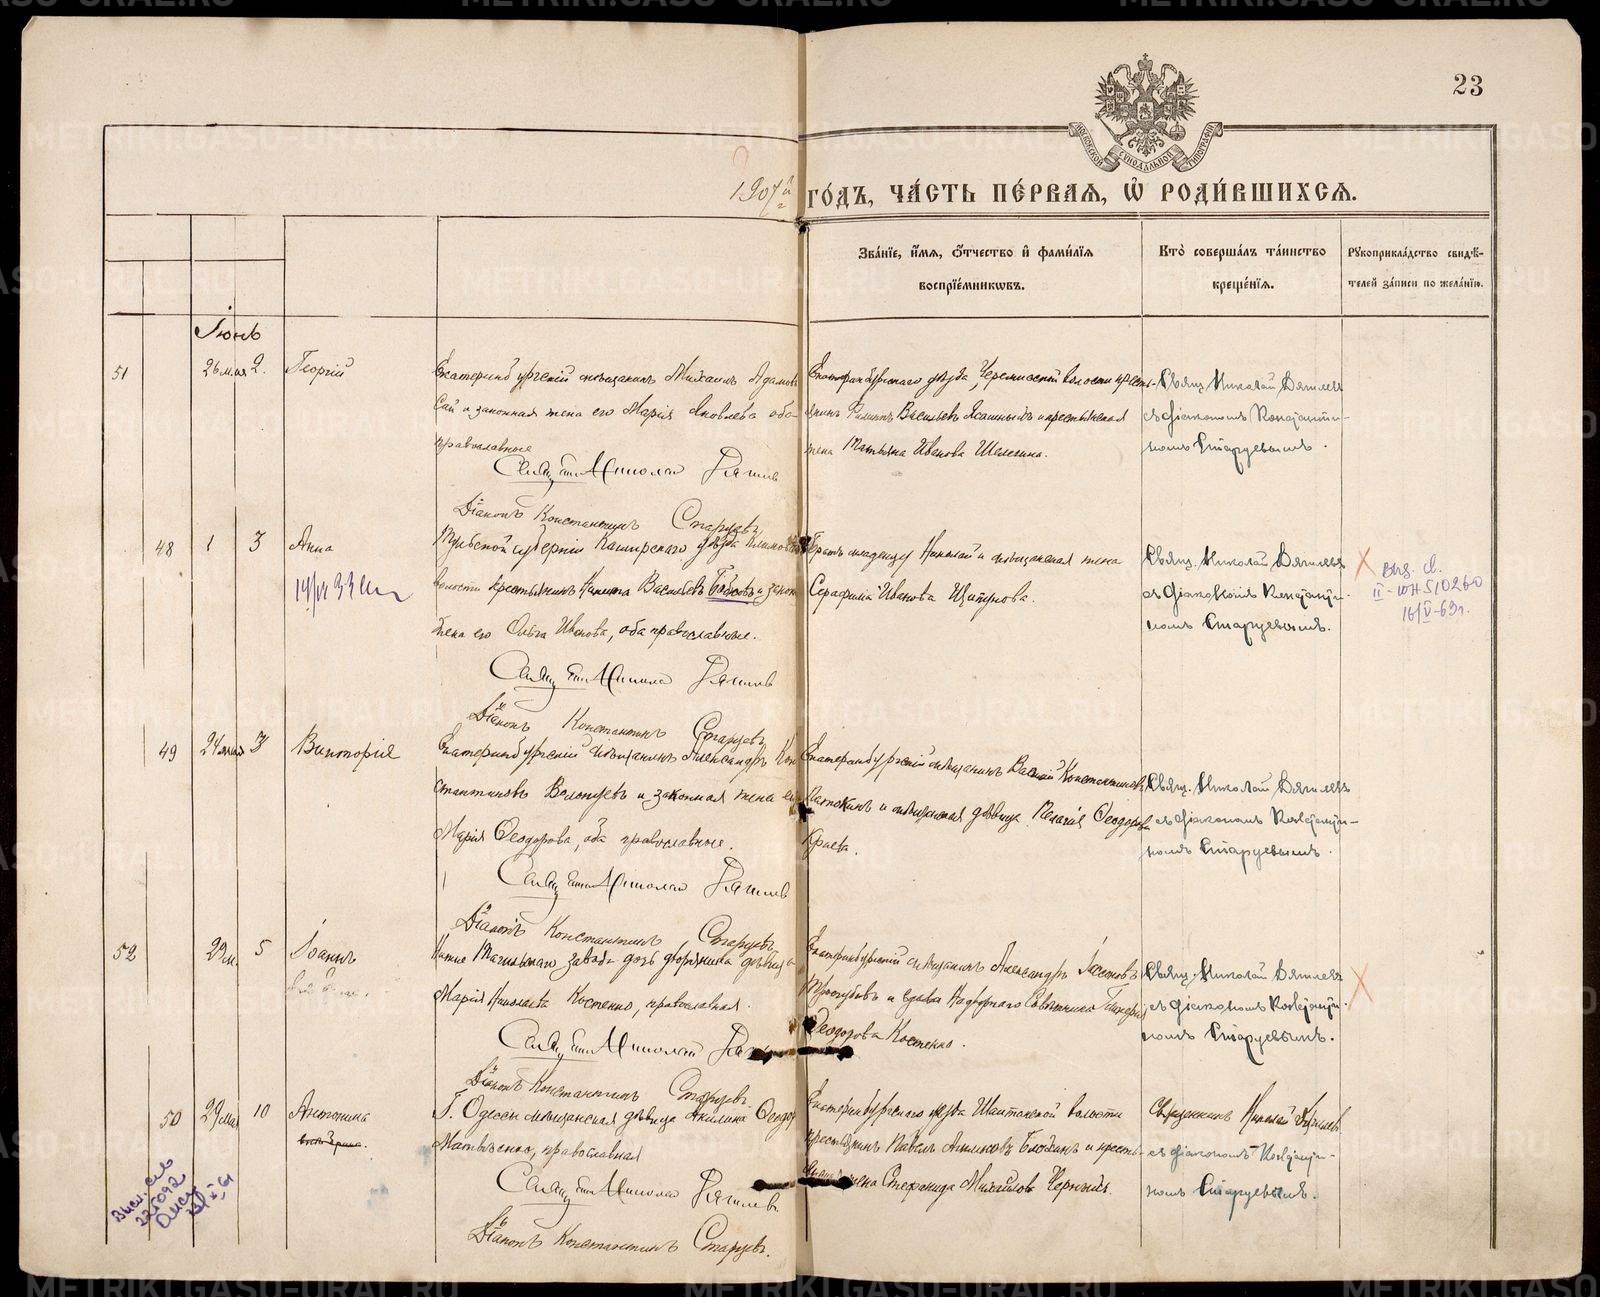 23
1907й г
ГО́ДЪ, ЧА́СТЬ ПЕ́РВАЯ, Ѡ҆ РОДИ́ВШИХСѦ.
Зва́нїе, и҆́мѧ, ѻ҆́тчество и҆ фами́лїѧ
воспрїе́мникѡвъ.
Кто̀ соверша́лъ та́инство
креще́нїѧ.
Рꙋкоприкла́дство свидѣ́-
телей за́писи по жела́нїю.
Іюнь
51
26 мая 2.
Георгій
Екатеринбургскій мѣщанинъ Михаилъ Адамовъ
Сай и законная жена его Марія Яковлева оба
православные
Священникъ Николай Дягилевъ
Діаконъ Константинъ Старцевъ
Екатеринбургскаго уѣзда, Черемисской волости кресть-
янинъ Филиппъ Васильевъ и крестьянская
жена Татьяна Иванова Шелегина.
Свящ. Николай Дягилевъ
съ діакономъ Константи-
номъ Старцевымъ.
48 1 3
Анна
Тульской губерніи Каширскаго уѣзда
волости крестьянинъ Никита Васильевъ и закон
жена его Ольга Иванова, оба православные.
Священникъ Николай Дягилевъ
Діаконъ Константинъ Старцевъ
Братъ младенцу Николай и мѣщанская жена
Серафима Иванова
Свящ. Николай Дягилевъ
съ діакономъ Константи-
номъ Старцевымъ.
Выд. св.
II-ЮН 510260
16/V-63г.
49 24 мая 3
Викторія
Екатеринбургскій мѣщанинъ Александръ Кон
стантиновъ и законная жена его
Марія Ѳеодорова, оба православные.
Священникъ Николай Дягилевъ
Діаконъ Константинъ Старцевъ
Екатеринбургскій мѣщанинъ Василій Константиновъ
и мѣщанская дѣвица Пелагія Ѳеодорова
Краева.
Свящ. Николай Дягилевъ
съ діакономъ Константи-
номъ Старцевымъ.
52 29 м. 5
Іоаннъ
Нижне Тагильскаго завода дочь дворянина дѣвица
Марія Николаева Костенко, православная.
Священникъ Николай
Діаконъ Константинъ Старцевъ
Екатеринбургскій мѣщанинъ Александръ
и вдова Надворнаго Совѣтника
Ѳеодорова Костенко.
Свящ. Николай Дягилевъ
съ діакономъ Константи-
номъ Старцевымъ.
50 29 мая 10
Антонина
Г. Одессы мѣщанская дѣвица Акилина Ѳеодор
Матвѣенко, православная
Священникъ Николай Дягилевъ
Діаконъ Константинъ Старцевъ.
Екатеринбургскаго уѣзда Шайтанской волости
крестьянинъ Павелъ и кресть-
жена Стефанида Михайлова Черныхъ.
Священникъ Николай Дягилевъ
съ діакономъ Константи-
номъ Старцевымъ.
METRIKI.GASO-URAL.RU